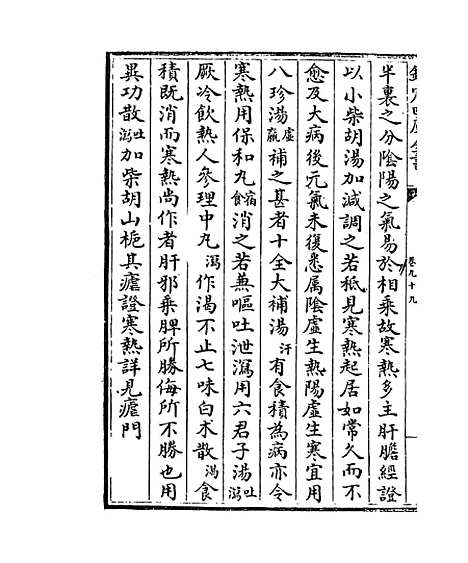 欽定四庫全書
卷九十九
半裏之分陰陽之氣易於相乘故寒熱多主肝膽經證
以小柴胡湯加減調之若秖見寒熱起居如常久而不
愈及大病後元氣未復悉屬陰虛生熱陽虛生寒宜用
八珍湯虛羸補之甚者十全大補湯汗有食積為病亦令
寒熱用保和丸宿食消之若兼嘔吐泄瀉用六君子湯吐瀉
厥冷飲熱人參理中丸瀉作渴不止七味白术散渴食
積既消而寒熱尚作者肝邪乘脾所勝侮所不勝也用
異功散吐瀉加柴胡山梔其瘧證寒熱詳見瘧門